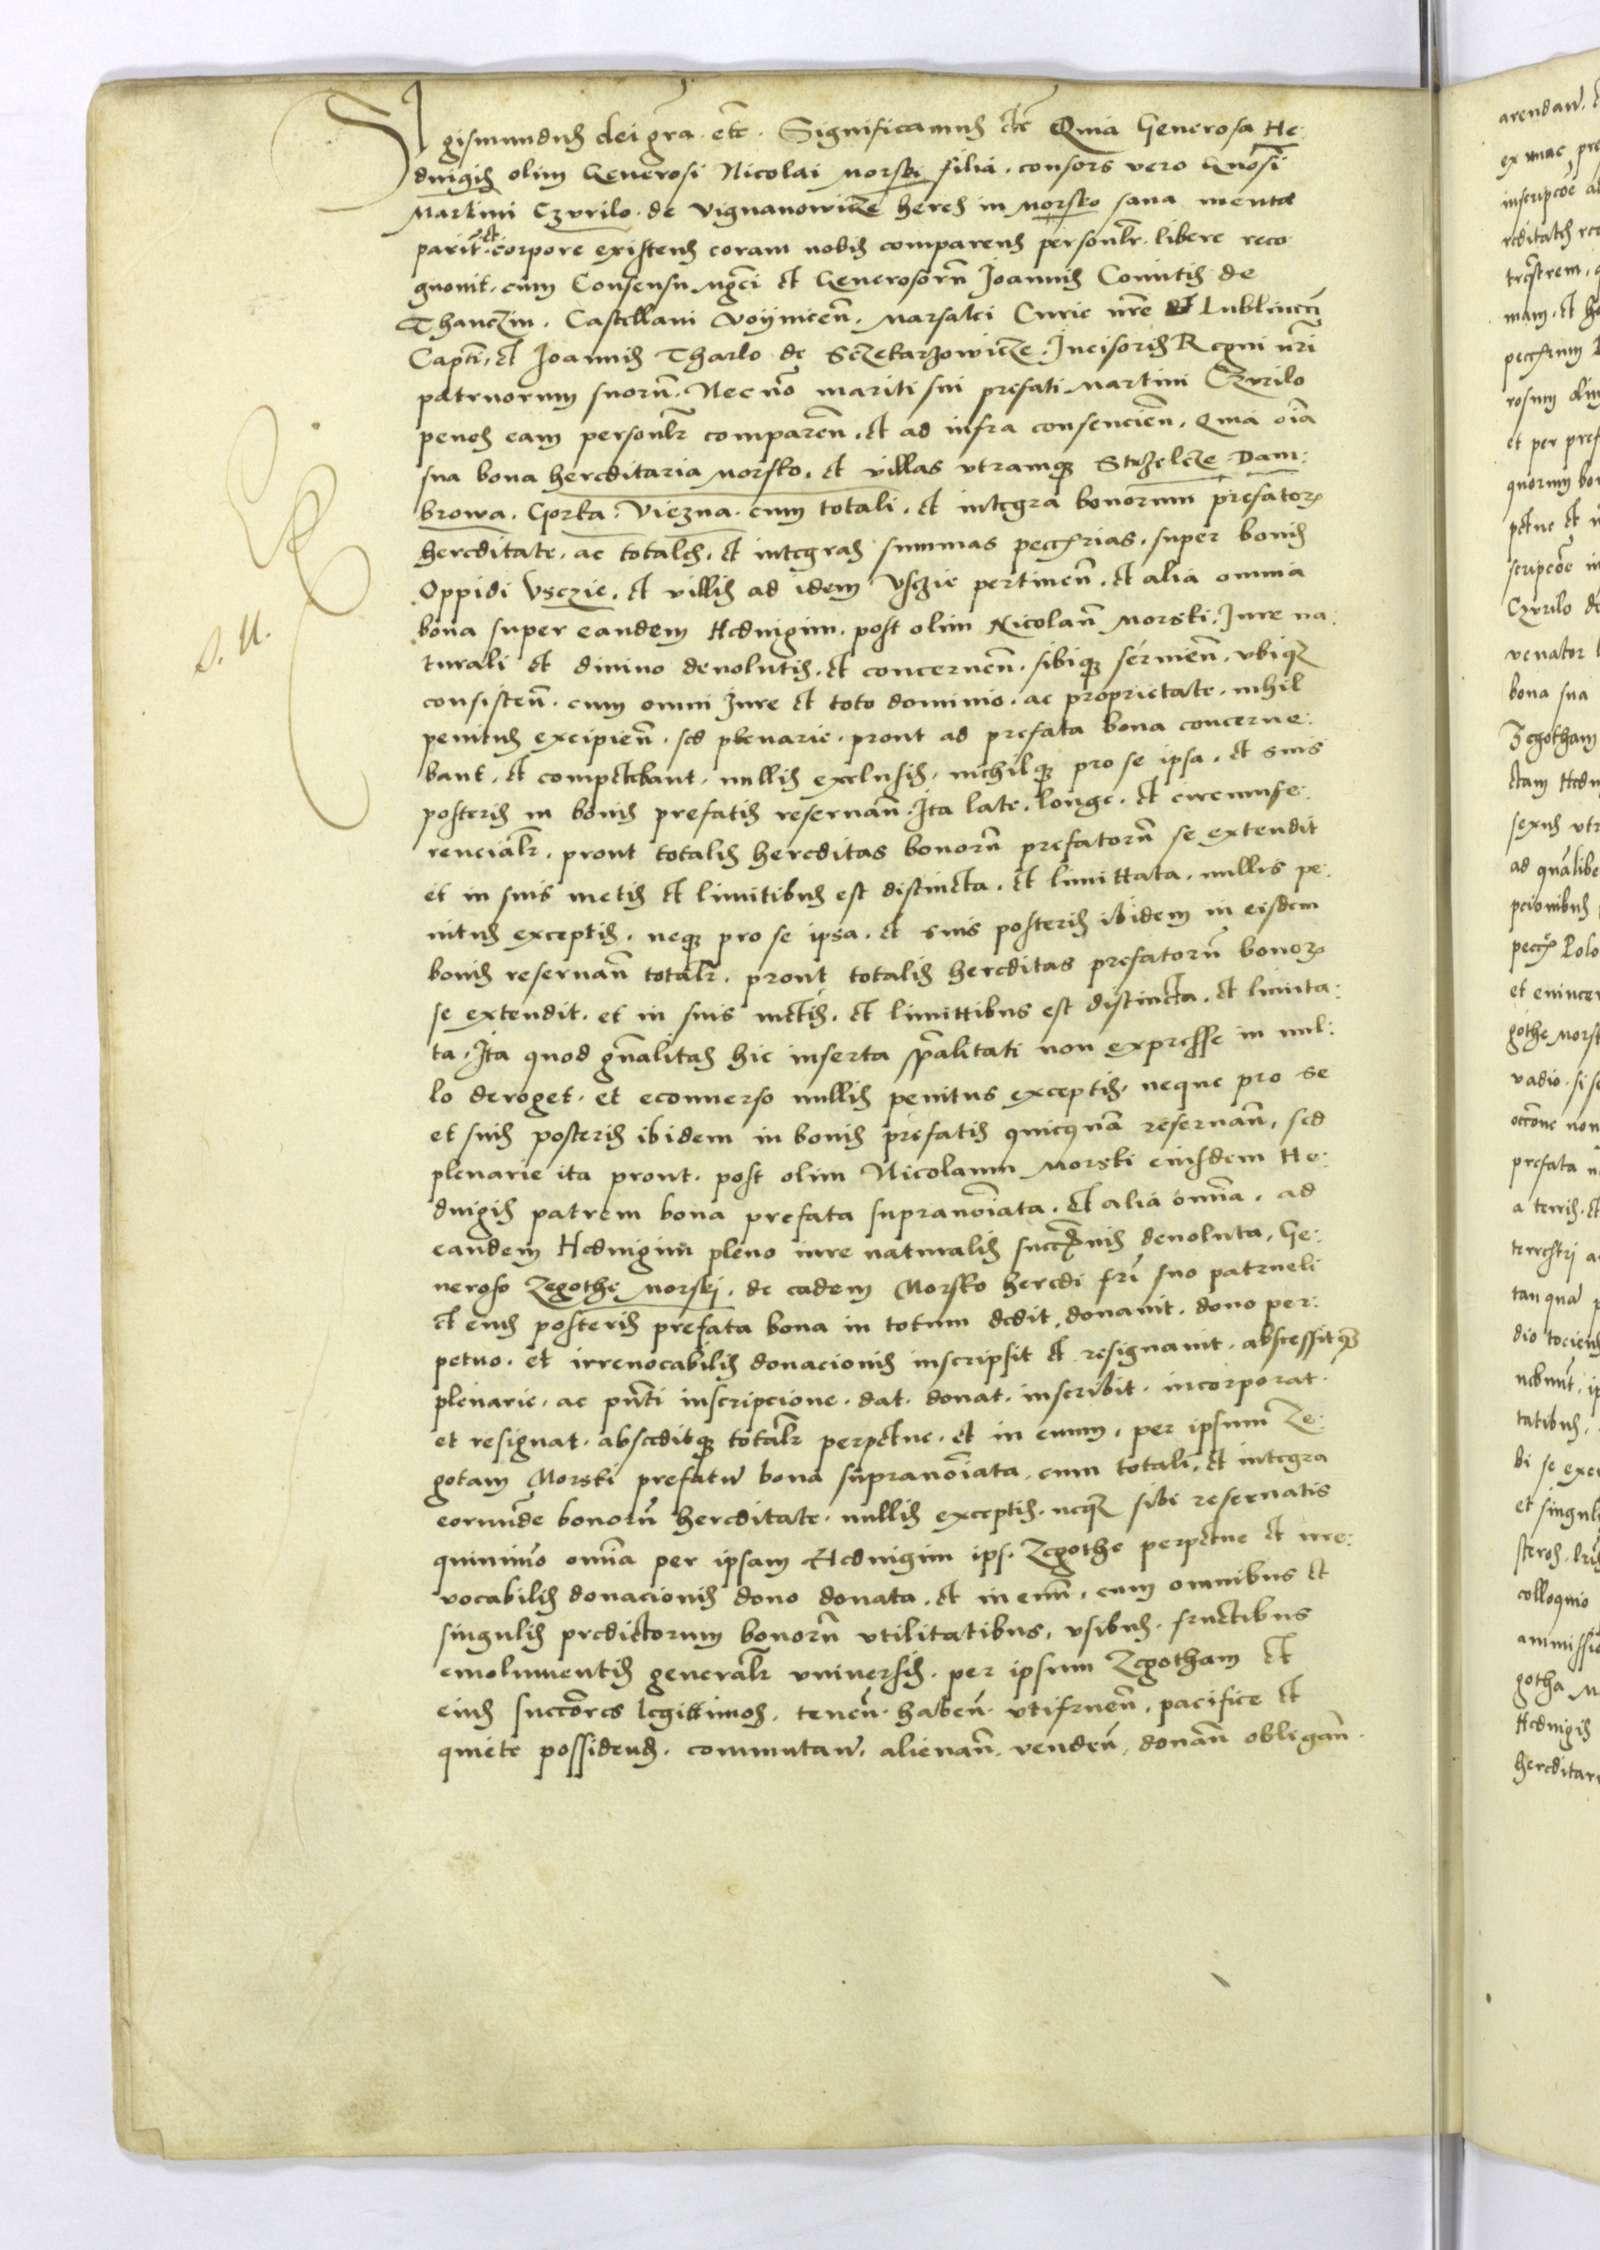 Sigismundus dei gra. etc. Significamus etc Quia Generosa He:
dvigis olim Generosi Nicolai Morski filia. consors vero Gnosi
Martini Czvrilo de Vignanowicze heres in Morsko sana mente
parit. et corpore existens coram nobis comparens personlr. libere reco
gnovit. cum Consensu Mgci et Generosorum Joannis Comitis de
Thanczin. Castellani Voynicen. Marsalci Curie nre et Lublinen
Capti. et Joannis Tharlo de Sczekarzowicze. Incisoris Regni nri
patruorum suorum. Nec no mariti sui prefati Martini Czvrilo
penes eam personlr comparen. et ad infra consencien. Quia oia
sua bona hereditaria Morsko. et villas utramque Strzelcze Dam:
browa. Gorka. Viezna. cum totali. et integra bonorum prefator
hereditate. ac totales. et integras summas pecrias. super bonis
Oppidi Usczie. et villis ad idem Usczie pertinen. et alia omnia
bona super eandem Hedvigim. post olim Nicolaum Morski. Jure na:
turali et divino devolutis. et concernen. sibique servien. ubique
consisten. cum omni Jure et toto dominio. ac proprietate. nihil
penitus excipien. sed plenarie. prout ad prefata bona concerne:
bant. et competebant. nullis exclusis. nichilque pro se ipsa. et suis
posteris in bonis prefatis reservan. Ita late. longe. et circumfe:
rencialr. prout totalis hereditas bonorum prefatorum se extendit
et in suis metis et limitibus est distincta. et limittata. nullis pe:
nitus exceptis. neque pro se ipsa. et suis posteris ibidem in eisdem
bonis reservan totalr. prout totalis hereditas prefatorum bonor
se extendit. et in suis metis. et limittibus est distincta. et limita:
ta. Ita quod gnalitas hic inserta spalitati non expresse in nul:
lo deroget. et econverso nullis penitus exceptis. neque pro se
et suis posteris ibidem in bonis prefatis quicquam reservan. sed
plenarie ita prout. post olim Nicolaum Morski eiusdem He:
dvigis patrem bona prefata supranoiata. et alia omnia. ad
eandem Hedvigim pleno iure naturalis succnis devoluta. Ge:
neroso Zegothe Morski. de eadem Morsko heredi fri suo patrueli
et eius posteris prefata bona in totum dedit. donavit. dono per:
petuo. et irrevocabilis donacionis inscripsit et resignavit. abscessitque
plenarie. ac pnti inscripcione. dat. donat. inscribit. incorporat.
et resignat. abscditque totalr perpetue. et in evum. per ipsum Ze:
gotam Morski prefatum bona supranoiata. cum totali. et integra
eorumde bonorum hereditate. nullis exceptis. neque sibi reservatis
quinimo omnia per ipsam Hedvigim ips. Zegothe perpetue et irre:
vocabilis donacionis dono donata. et in evum. cum omnibus et
singulis predictorum bonorum utilitatibus. usibus. fructibus
emolumentis generalr universis. per ipsum Zegotham et
eius succores legittimos. tenen. haben. utifruen. pacifice et
quiete possidend. commutan. alienan. venden. donan obligan.